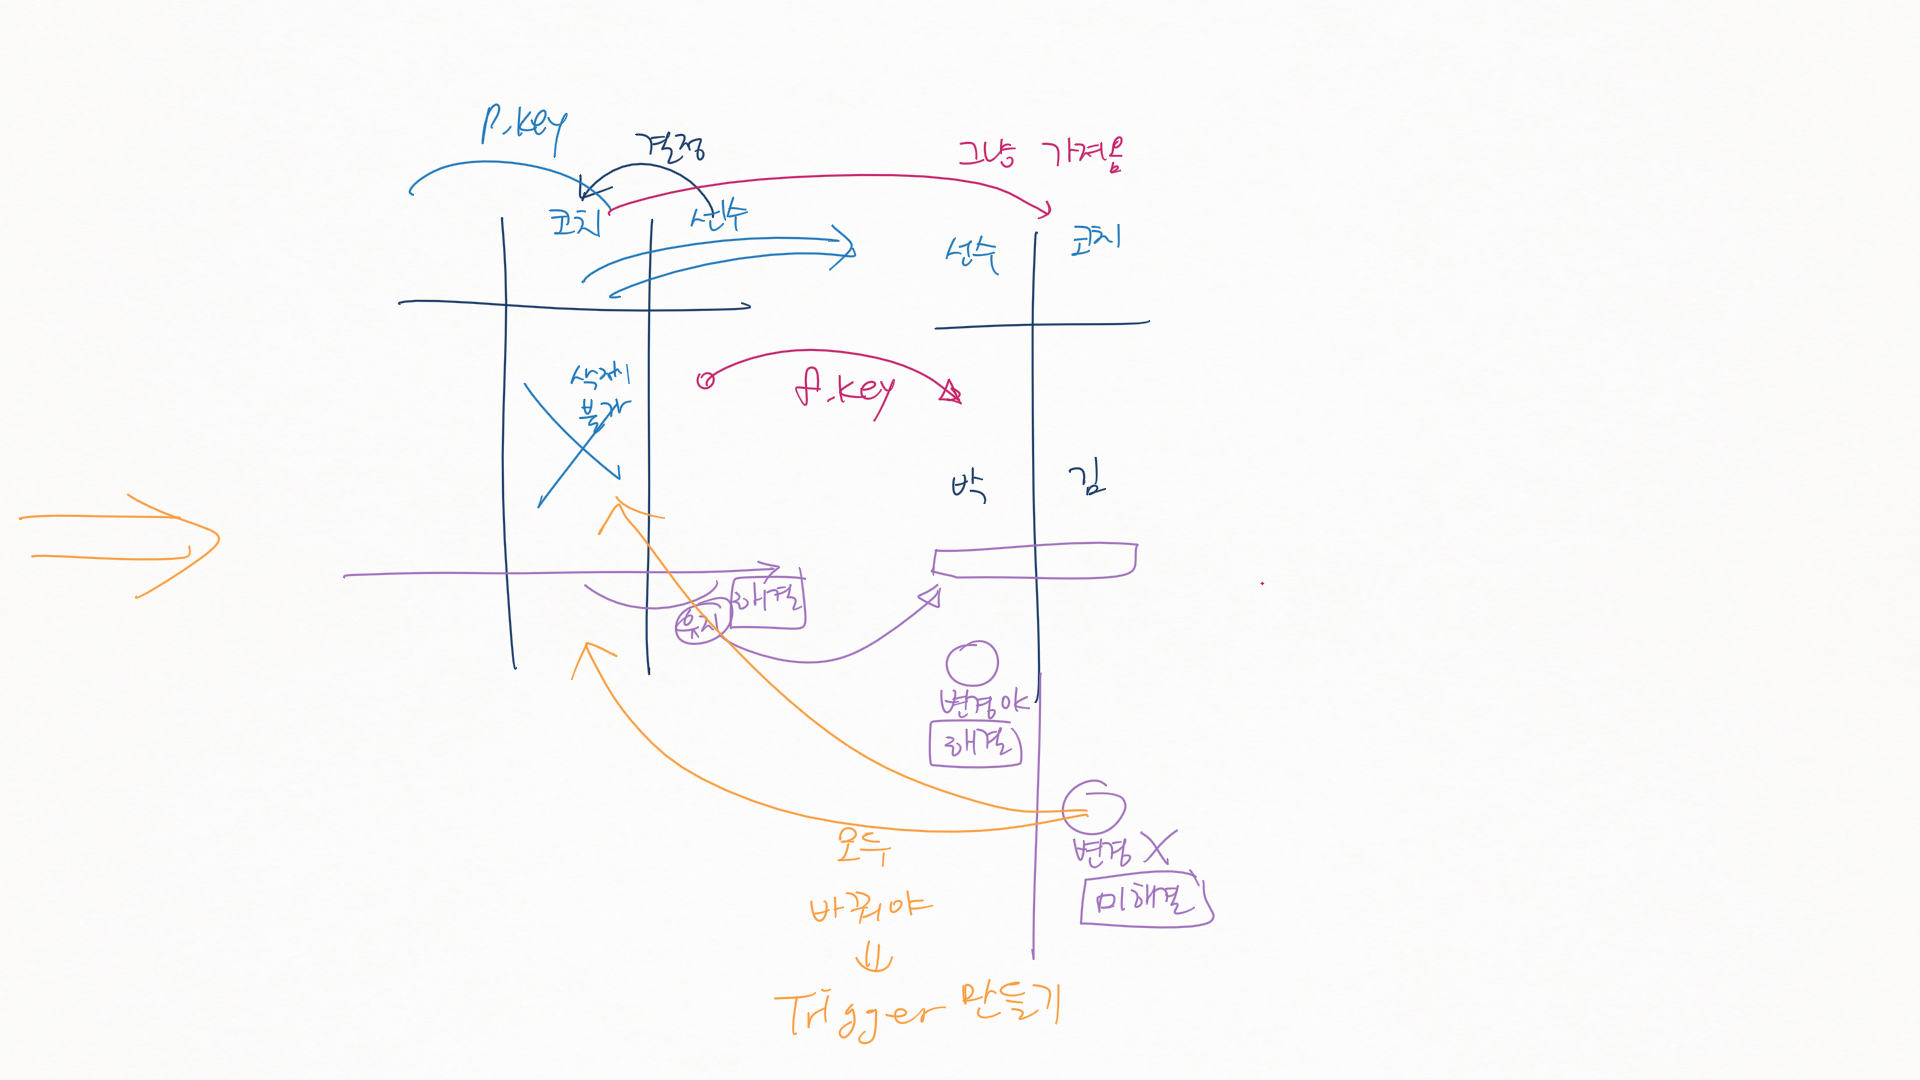 P.key
결정
그냥 가져옴
코치
선수
선수
코치
삭제
불가
f.key
박
김
유지
해결
변경야
해결
변경 X
미해결
모두
바꿔야
Trigger 만들기